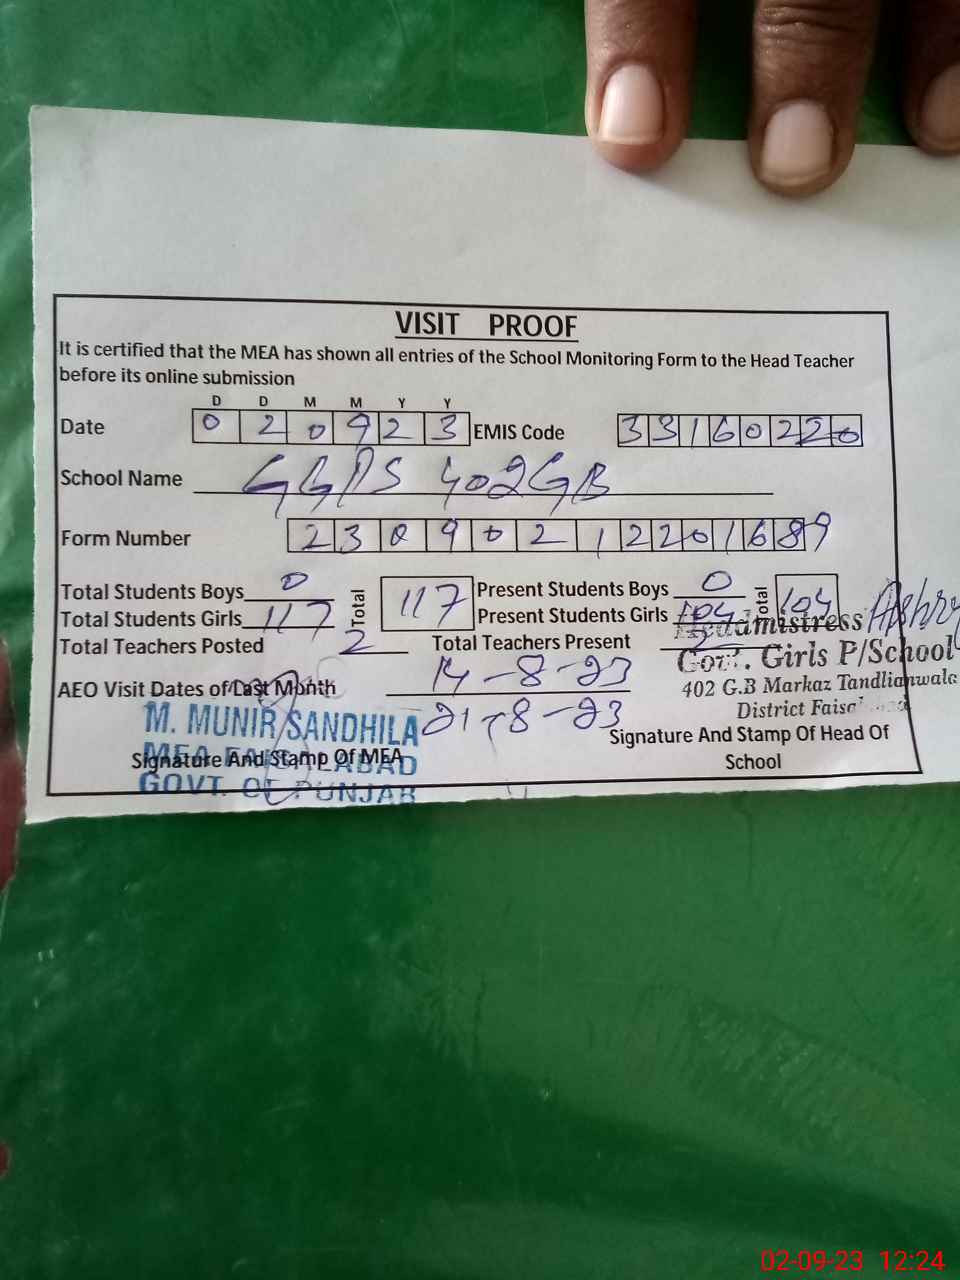 VISIT PROOF
It is certified that the MEA has shown all entries of the School Monitoring Form to the Head Teacher
before its online submission
D D M M Y Y
Date 0 2 0 9 2 3 EMIS Code 3 3 1 6 0 2 2 0
School Name GGPS 402GB
Form Number 2 3 0 9 0 2 1 2 2 0 1 6 8 9
Total Students Boys 0 Total 117 Present Students Boys 0 Total 104
Total Students Girls 117 Present Students Girls 104
Total Teachers Posted 2 Total Teachers Present 2
Headmistress
Govt. Girls P/School
402 G.B Markaz Tandlianwala
District
AEO Visit Dates of Last Month 14-8-23
21-8-23
M. MUNIR SANDHILA
MEA FAISALABAD
GOVT. OF PUNJAB
Signature And Stamp Of MEA
Signature And Stamp Of Head Of
School
02-09-23 12:24